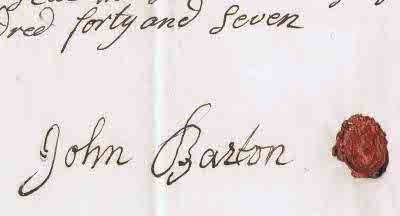 dred forty and Seven
John Barton